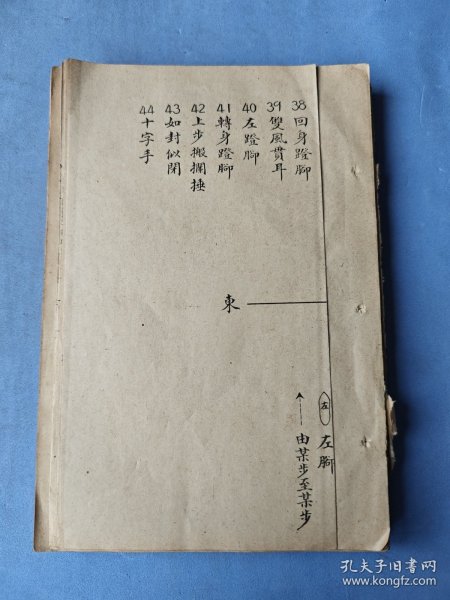 38 回身蹬腳
39 雙風貫耳
40 左蹬腳
41 轉身蹬腳
42 上步搬攔捶
43 如封似閉
44 十字手
東
左 左腳
由某步至某步
孔夫子旧書网
www.kongfz.com